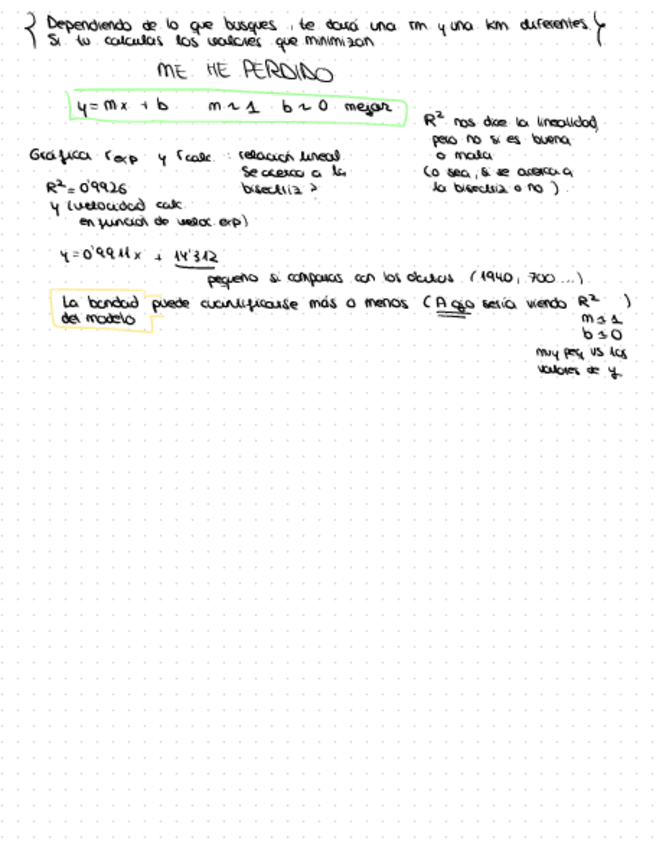 Dependiendo de lo que busques, te dará una rm y una km diferentes.
Si tu calculas los valores que minimizan
ME HE PERDIDO
y = mx + b m ~ 1 b ~ 0 mejor
R² nos dice la linealidad,
pero no si es buena
o mala
(o sea, si se acerca a
la bisectriz o no).
Gráfica rexp y rcalc : relación lineal.
Se acerca a la
bisectriz?
R² = 0'9926
y (velocidad calc
en función de veloc. exp)
y = 0'9911x + 14'312
pequeño si comparas con los datos (1940, 700...)
La bondad puede cuantificarse más o menos (A ojo sería viendo R² )
del modelo
m ≃ 1
b ≃ 0
muy peq vs los
valores de y